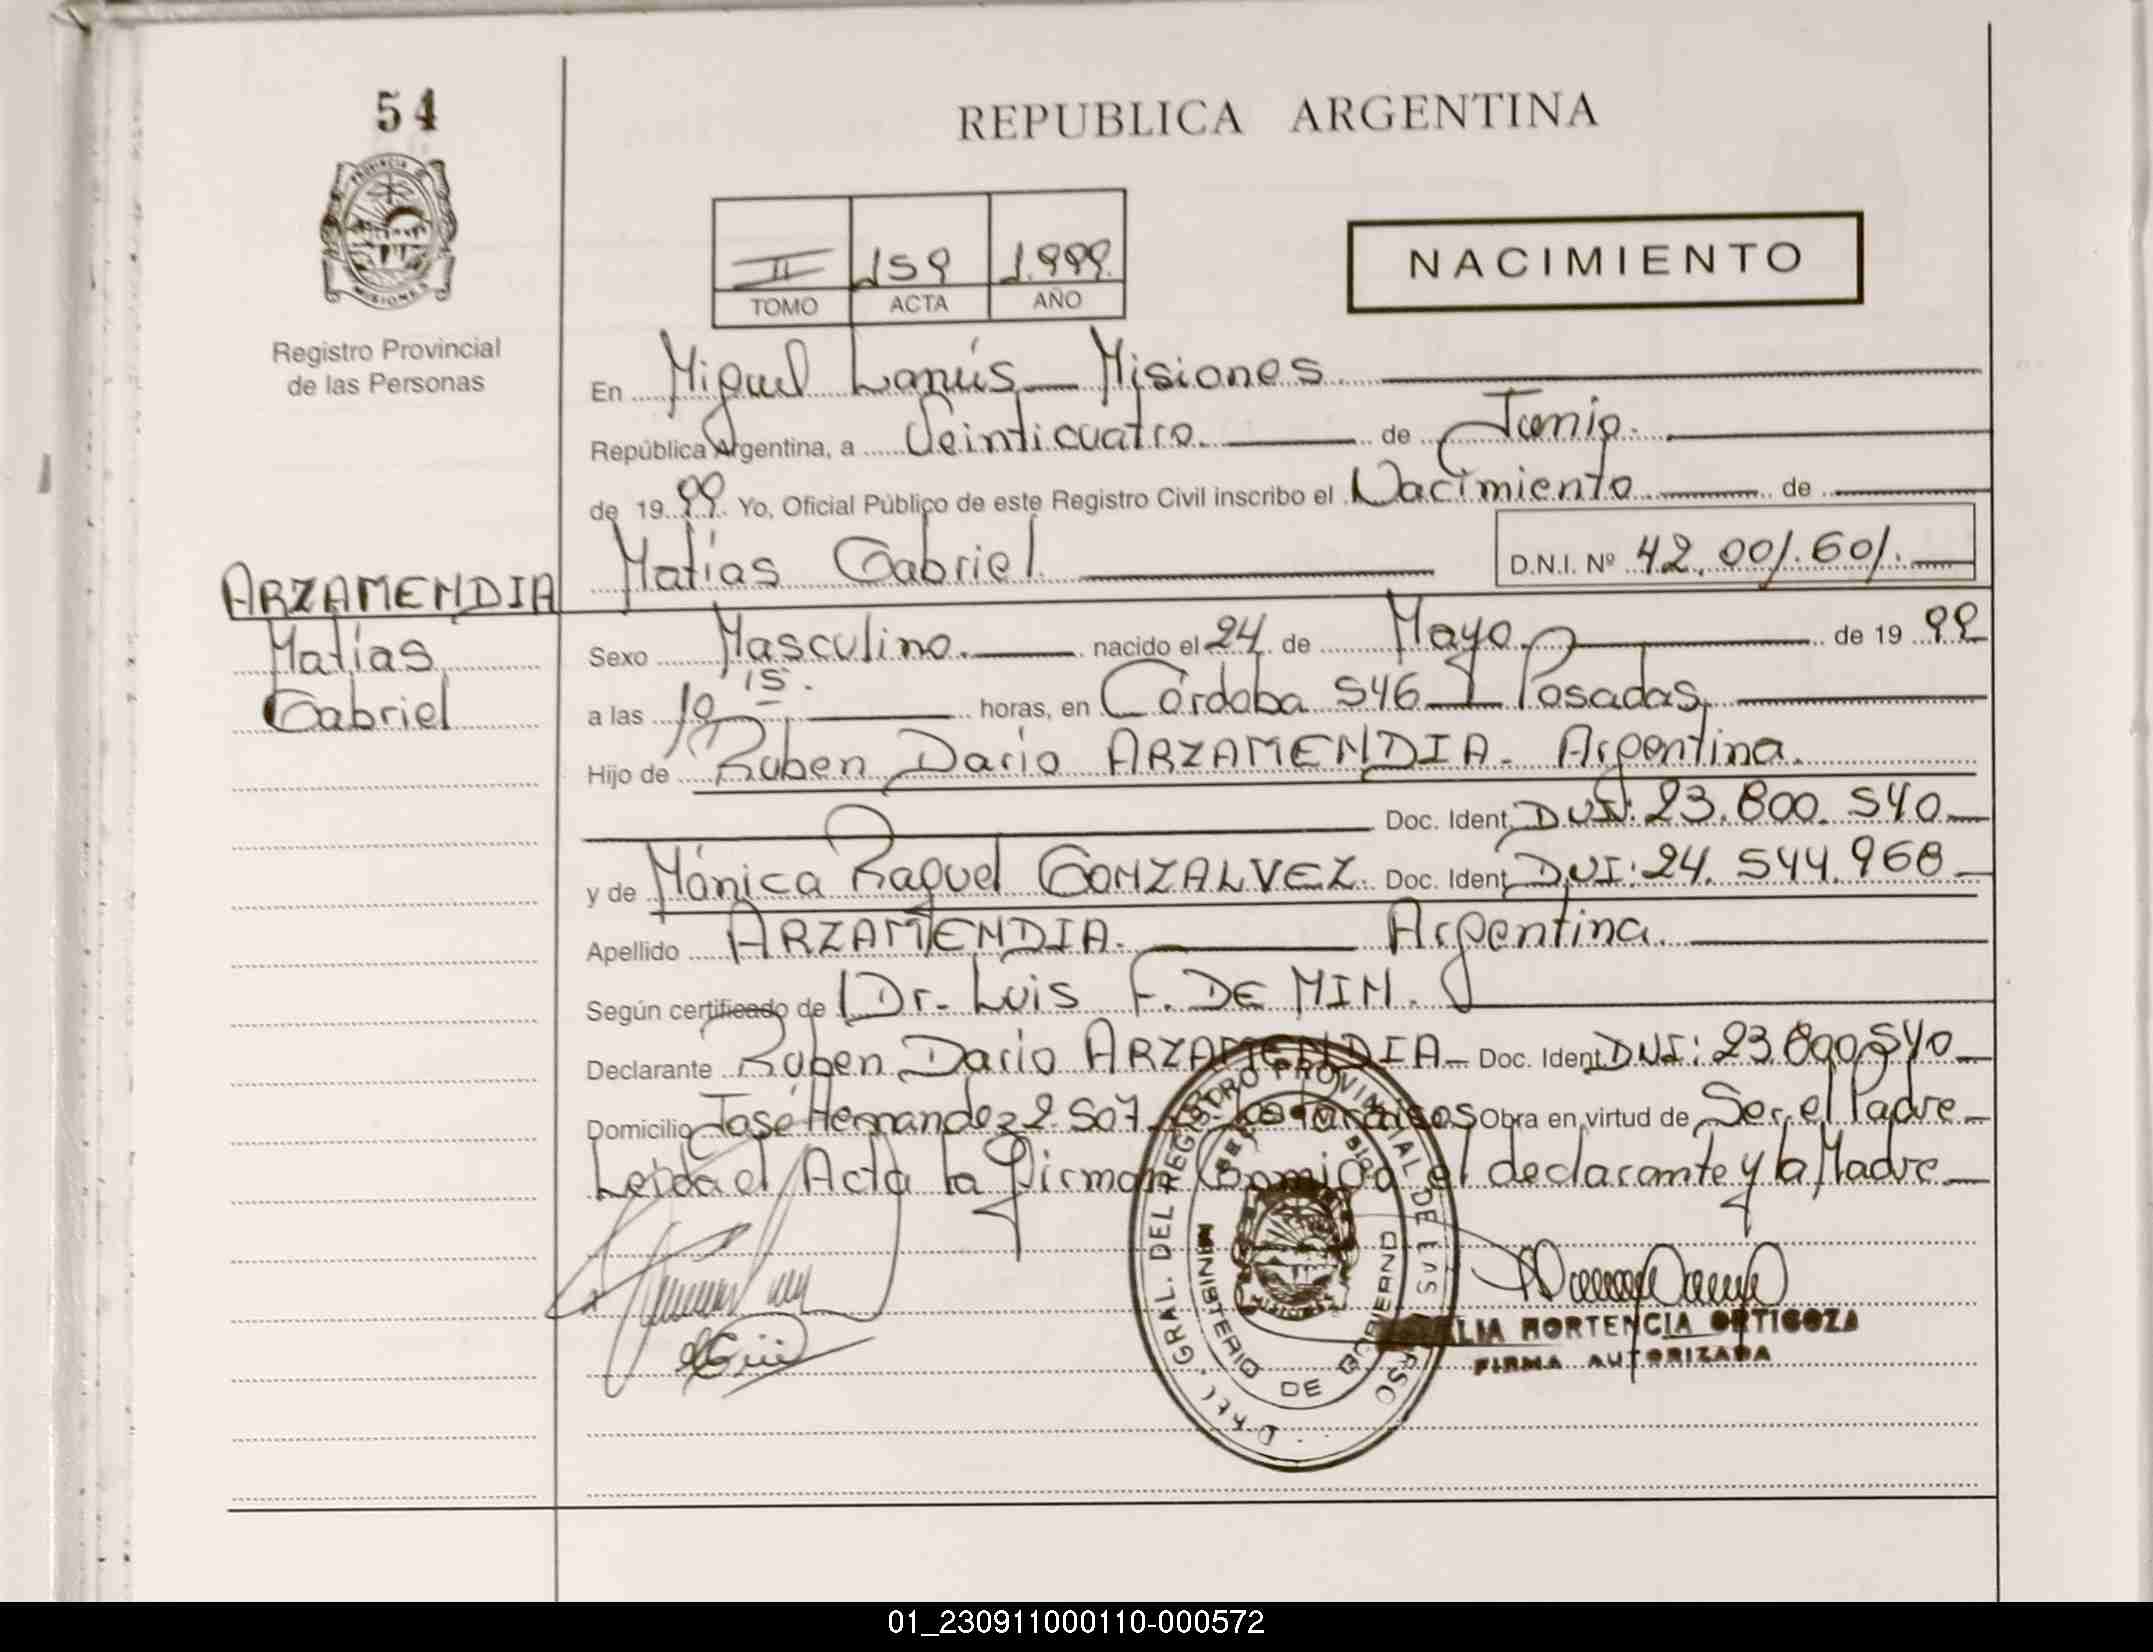 54
REPUBLICA ARGENTINA
PROVINCIA D
MISIONES
Registro Provincial
de las Personas
II 159 1.999.
TOMO ACTA AÑO
NACIMIENTO
En Miguel Lanús Misiones
República Argentina, a Veinticuatro. de Junio.
de 19 99 Yo, Oficial Público de este Registro Civil inscribo el Nacimiento de
Matías Gabriel D.N.I. Nº 42.001.601.
ARZAMENDIA
Matías
Gabriel
Sexo Masculino. nacido el 24 de Mayo. de 19 99
a las 10 15. horas, en Córdoba 546 Posadas,
Hijo de Ruben Dario ARZAMENDIA. Argentina.
Doc. Ident. DNI: 23.800.540
y de Mónica Raquel GONZALVEZ. Doc. Ident. DNI: 24.544.968
Apellido ARZAMENDIA. Argentina.
Según certificado de Dr. Luis F. DE MIN.
Declarante Ruben Dario ARZAMENDIA Doc. Ident. DNI: 23.800.540
Domicilio José Hernandez 2.507 Obra en virtud de Ser el Padre
Leida el Acta la firman Conmigo el declarante y la Madre
GRAL. DEL REGISTRO PROVINCIAL DE LAS
MINISTERIO DE GOBIERNO
LIA HORTENCIA ORTIGOZA
FIRMA AUTORIZADA
01_230911000110-000572